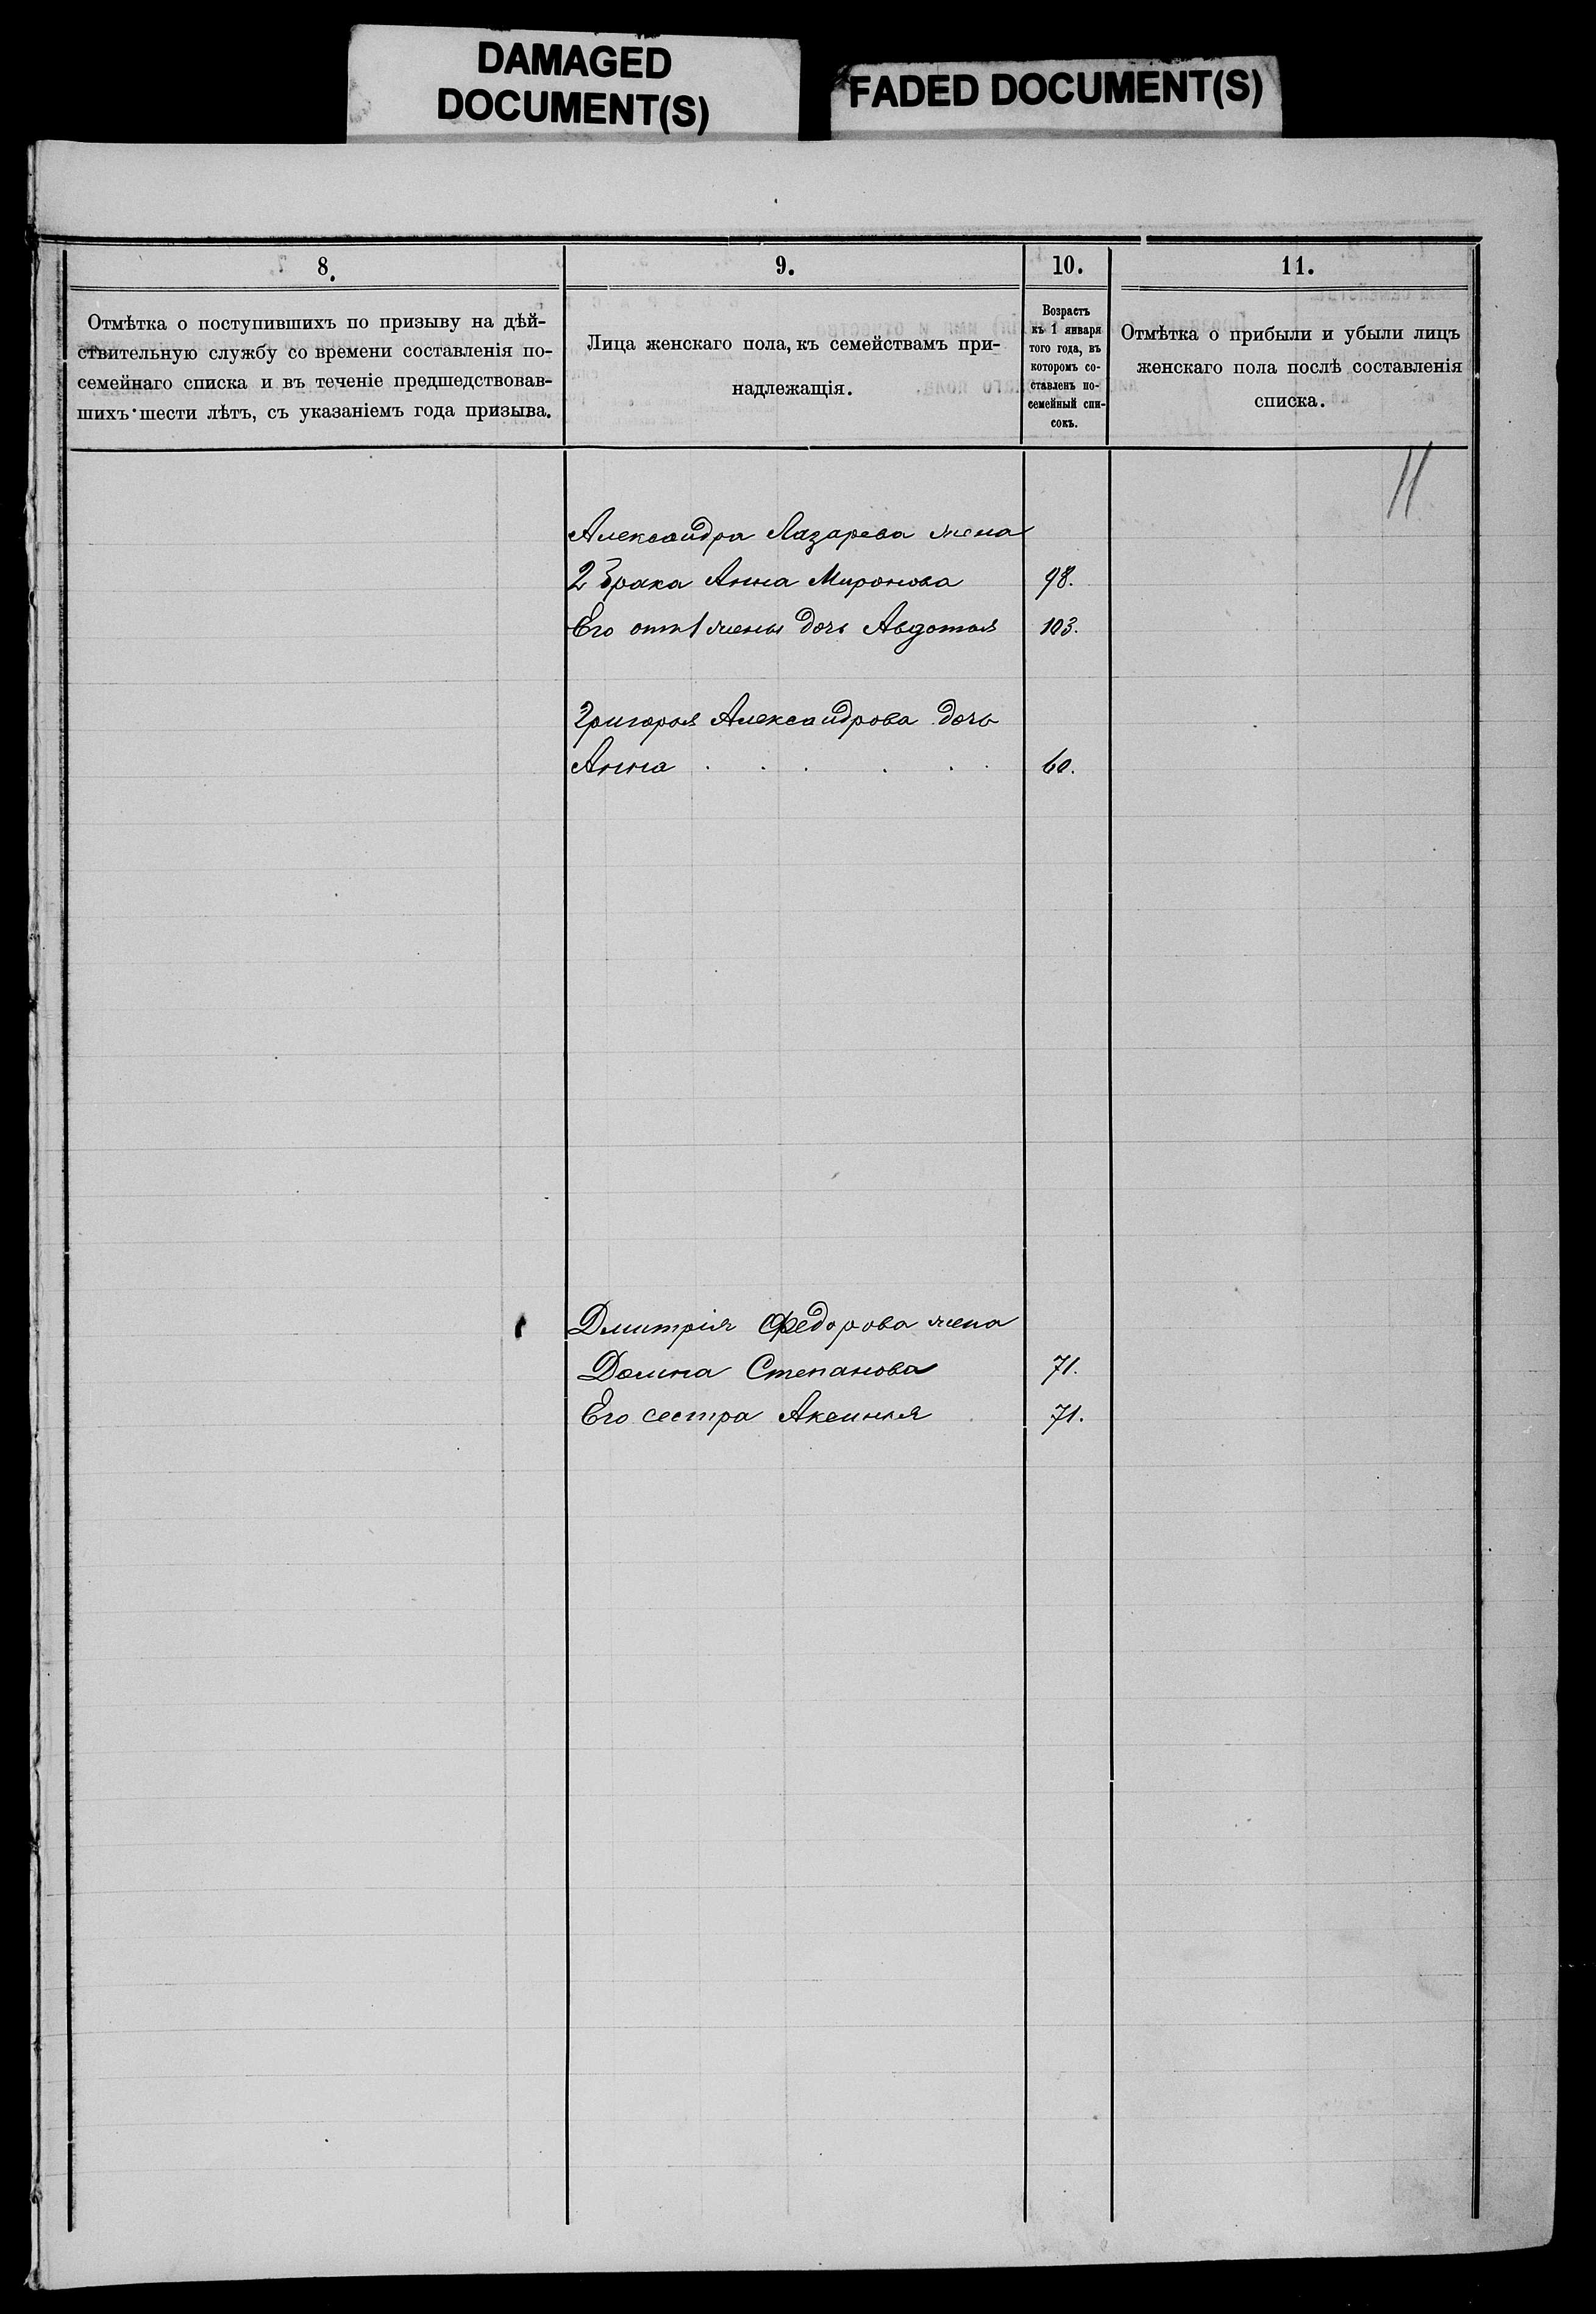 DAMAGED
DOCUMENT(S)
FADED DOCUMENT(S)
8.
Отмѣтка о поступившихъ по призыву на дѣй-
ствительную службу со времени составленія по-
семейнаго списка и въ теченіе предшедствовав-
шихъ шести лѣтъ, съ указаніемъ года призыва.
9.
Лица женскаго пола, къ семействамъ при-
надлежащія.
10.
Возрастъ
къ 1 января
того года, въ
которомъ со-
ставленъ по-
семейный спи-
сокъ.
11.
Отмѣтка о прибыли и убыли лицъ
женскаго пола послѣ составленія
списка.
11
Александра Лазарева жена
2 брака Анна Миронова 98.
Его отъ 1 жены дочь Авдотья 103.
Григорья Александрова дочь
Анна . . . . . . 60.
Дмитрія Федорова жена
Домна Степанова 71.
Его сестра Аксинья 71.